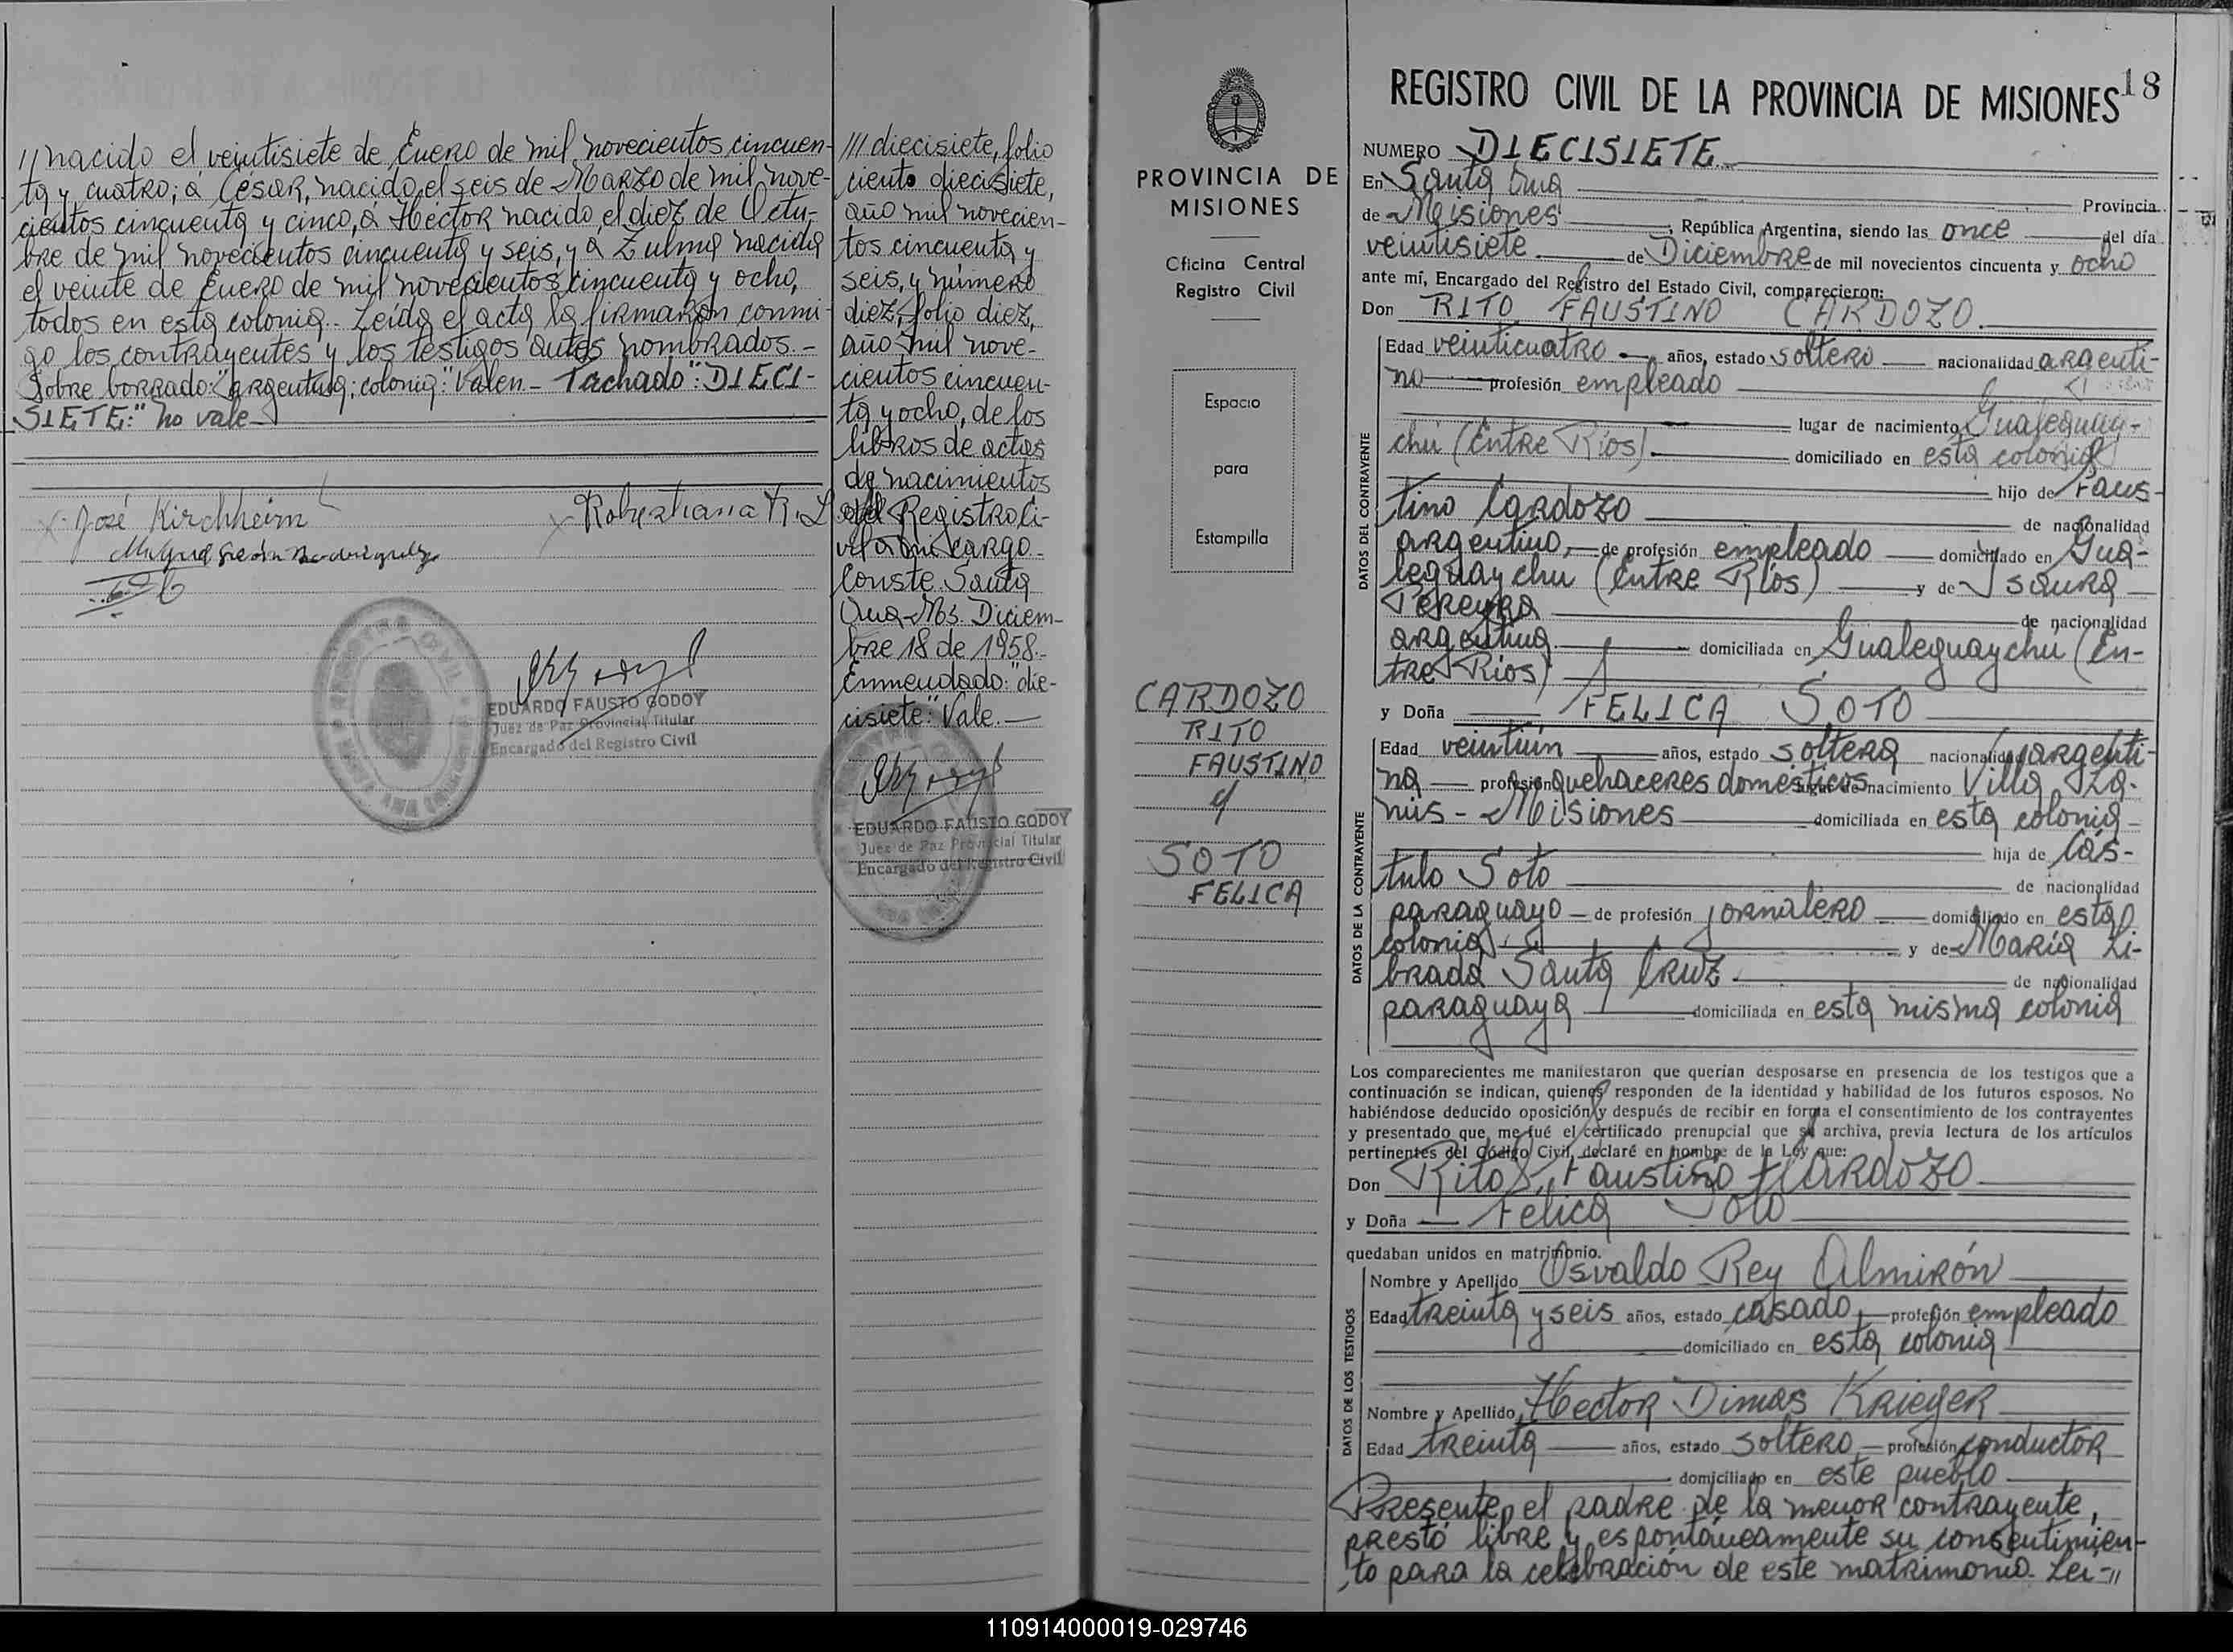 // nacido el veintisiete de Enero de mil novecientos cincuen-
ta y cuatro; a César, nacido el seis de Marzo de mil nove-
cientos cincuenta y cinco, a Héctor nacido el diez de Octu-
bre de mil novecientos cincuenta y seis, y a Zulma nacida
el veinte de Enero de mil novecientos cincuenta y ocho,
todos en esta colonia.- Leída el acta la firmaron conmi-
go los contrayentes y los testigos antes nombrados.-
Sobre borrado: "argentina; colonia": Valen - Tachado": DIECI-
SIETE:" no vale-
José Kirchheim
EDUARDO FAUSTO GODOY
Juez de Paz Provincial Titular
Encargado del Registro Civil
/// diecisiete, folio
ciento diecisiete,
año mil novecien-
tos cincuenta y
seis, y número
diez, folio diez,
año mil nove-
cientos cincuen-
ta y ocho, de los
libros de actas
de nacimientos
del Registro Ci-
vil a mi cargo.-
Conste. Santa
Ana-Mos. Diciem-
bre 18 de 1958.-
Enmendado: "die-
cisiete": Vale.-
EDUARDO FAUSTO GODOY
Juez de Paz Provincial Titular
Encargado del Registro Civil
PROVINCIA DE
MISIONES
Oficina Central
Registro Civil
Espacio
para
Estampilla
CARDOZO
RITO
FAUSTINO
y
SOTO
FELICA
18
REGISTRO CIVIL DE LA PROVINCIA DE MISIONES
NUMERO DIECISIETE
En Santa Ana Provincia
de Misiones, República Argentina, siendo las once del día
veintisiete de Diciembre de mil novecientos cincuenta y ocho
ante mí, Encargado del Registro del Estado Civil, comparecieron:
Don RITO FAUSTINO CARDOZO
DATOS DEL CONTRAYENTE
Edad veinticuatro años, estado soltero nacionalidad argenti-
no profesión empleado
lugar de nacimiento Gualeguay-
chú (Entre Ríos) domiciliado en esta colonia
hijo de Faus-
tino Cardozo de nacionalidad
argentino, de profesión empleado domiciliado en Gua-
leguaychu (Entre Ríos) y de Isaura
Pereyra de nacionalidad
argentina domiciliada en Gualeguaychú (En-
tre Ríos)
y Doña FELICA SOTO
DATOS DE LA CONTRAYENTE
Edad veintiún años, estado soltera nacionalidad argenti-
na profesión quehaceres domésticos lugar de nacimiento Villa La-
nús - Misiones domiciliada en esta colonia
hija de Cás-
tulo Soto de nacionalidad
paraguayo de profesión jornalero domiciliado en esta
colonia y de María Li-
brada Santa Cruz de nacionalidad
paraguaya domiciliada en esta misma colonia
Los comparecientes me manifestaron que querían desposarse en presencia de los testigos que a
continuación se indican, quienes responden de la identidad y habilidad de los futuros esposos. No
habiéndose deducido oposición y después de recibir en forma el consentimiento de los contrayentes
y presentado que me fué el certificado prenupcial que se archiva, previa lectura de los artículos
pertinentes del Código Civil, declaré en nombre de la Ley que:
Don Rito Faustino Cardozo
y Doña Felica Soto
quedaban unidos en matrimonio.
DATOS DE LOS TESTIGOS
Nombre y Apellido Osvaldo Rey Almirón
Edad treinta y seis años, estado casado, profesión empleado
domiciliado en esta colonia
Nombre y Apellido Hector Dimas Krieger
Edad treinta años, estado soltero, profesión conductor
domiciliado en este pueblo
Presente el padre de la menor contrayente,
prestó libre y espontáneamente su consentimien-
to para la celebración de este matrimonio. Leí-//
110914000019-029746